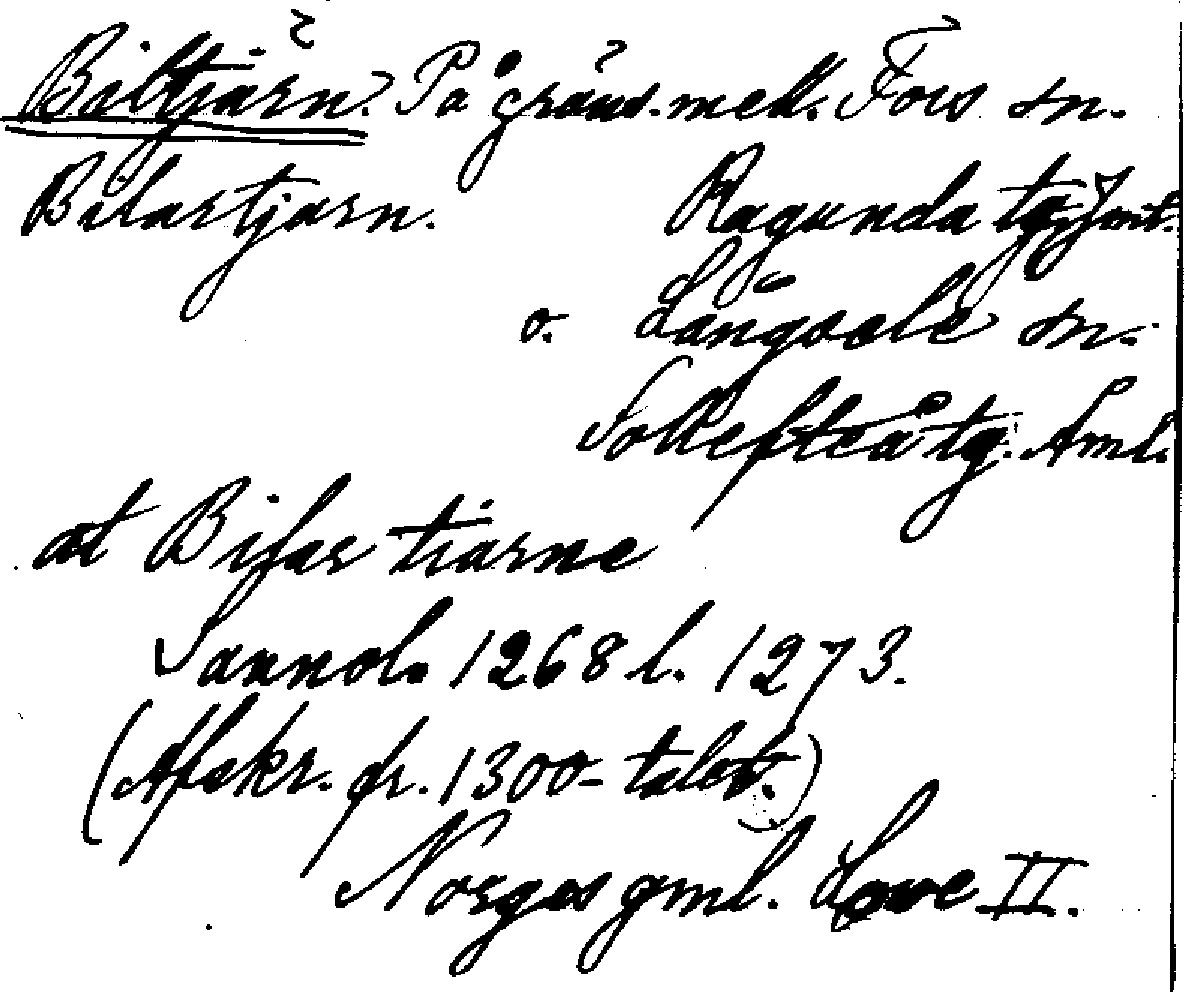 Biltjärn. På gräns. mell. Fors sn.
Bilartjärn. Ragunda tg. Jmt.
o. Långsele sn.
Sollefteå tg. Åml.
at Bifar tiarne
Sannol. 1268 l. 1273.
(Afskr. fr. 1300-talet.)
Norges gml. Love II.